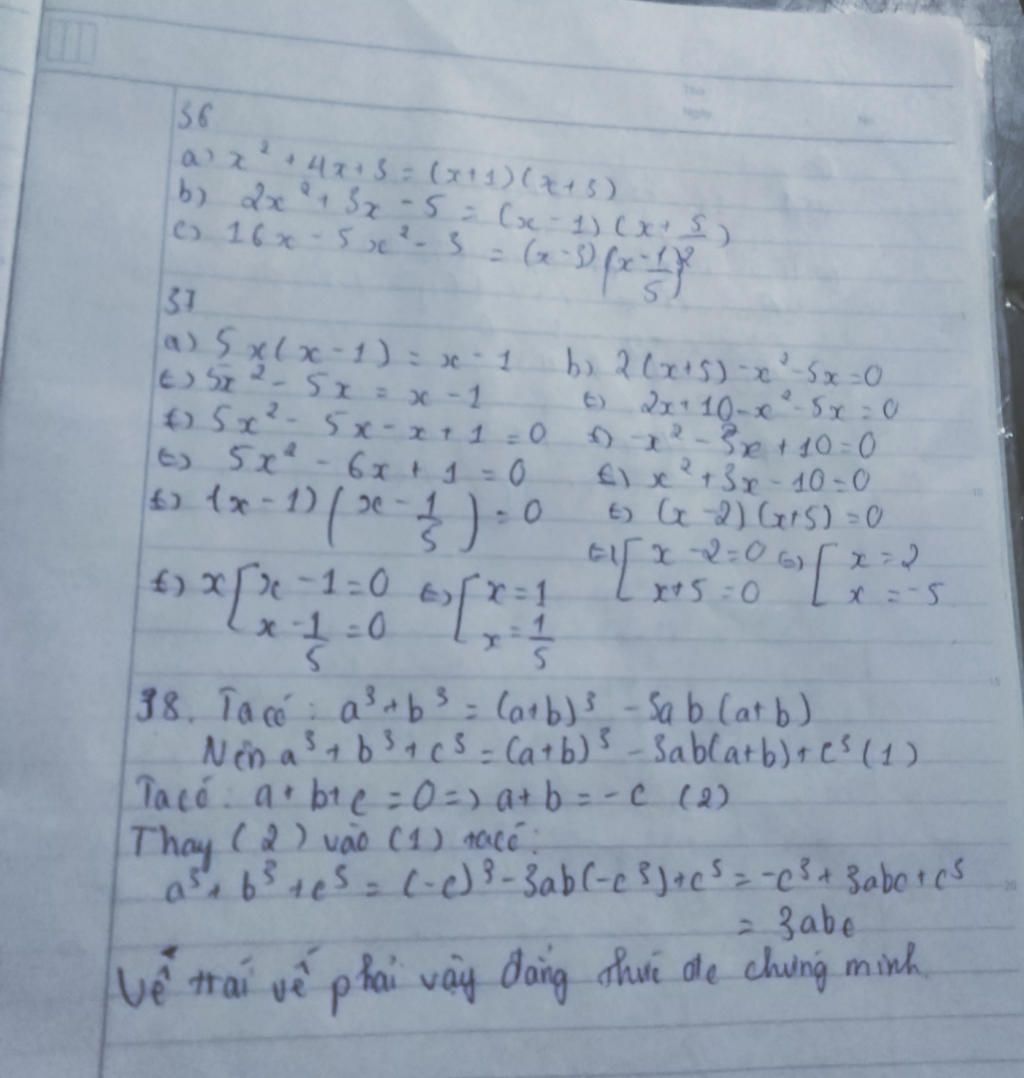 36
a) x² + 4x + 3 = (x+1)(x+3)
b) 2x² + 3x - 5 = (x - 1)(x + 5/2)
c) 16x - 5x² - 3 = (x - 3)(x - 1/5)
37
a) 5x(x - 1) = x - 1
⇔ 5x² - 5x = x - 1
⇔ 5x² - 5x - x + 1 = 0
⇔ 5x² - 6x + 1 = 0
⇔ (x - 1)(x - 1/5) = 0
⇔ x [ x - 1 = 0 ⇔ [ x = 1
x - 1/5 = 0 x = 1/5
b) 2(x+5) - x² - 5x = 0
⇔ 2x + 10 - x² - 5x = 0
⇔ -x² - 3x + 10 = 0
⇔ x² + 3x - 10 = 0
⇔ (x - 2)(x+5) = 0
⇔ [ x - 2 = 0 ⇔ [ x = 2
x + 5 = 0 x = -5
38. Ta có : a³ + b³ = (a+b)³ - 3ab(a+b)
Nên a³ + b³ + c³ = (a+b)³ - 3ab(a+b) + c³ (1)
Ta có : a + b + c = 0 => a + b = -c (2)
Thay (2) vào (1) ta có :
a³ + b³ + c³ = (-c)³ - 3ab(-c³) + c³ = -c³ + 3abc + c³
= 3abc
Vế trái vế phải vậy đẳng thức đc chứng minh